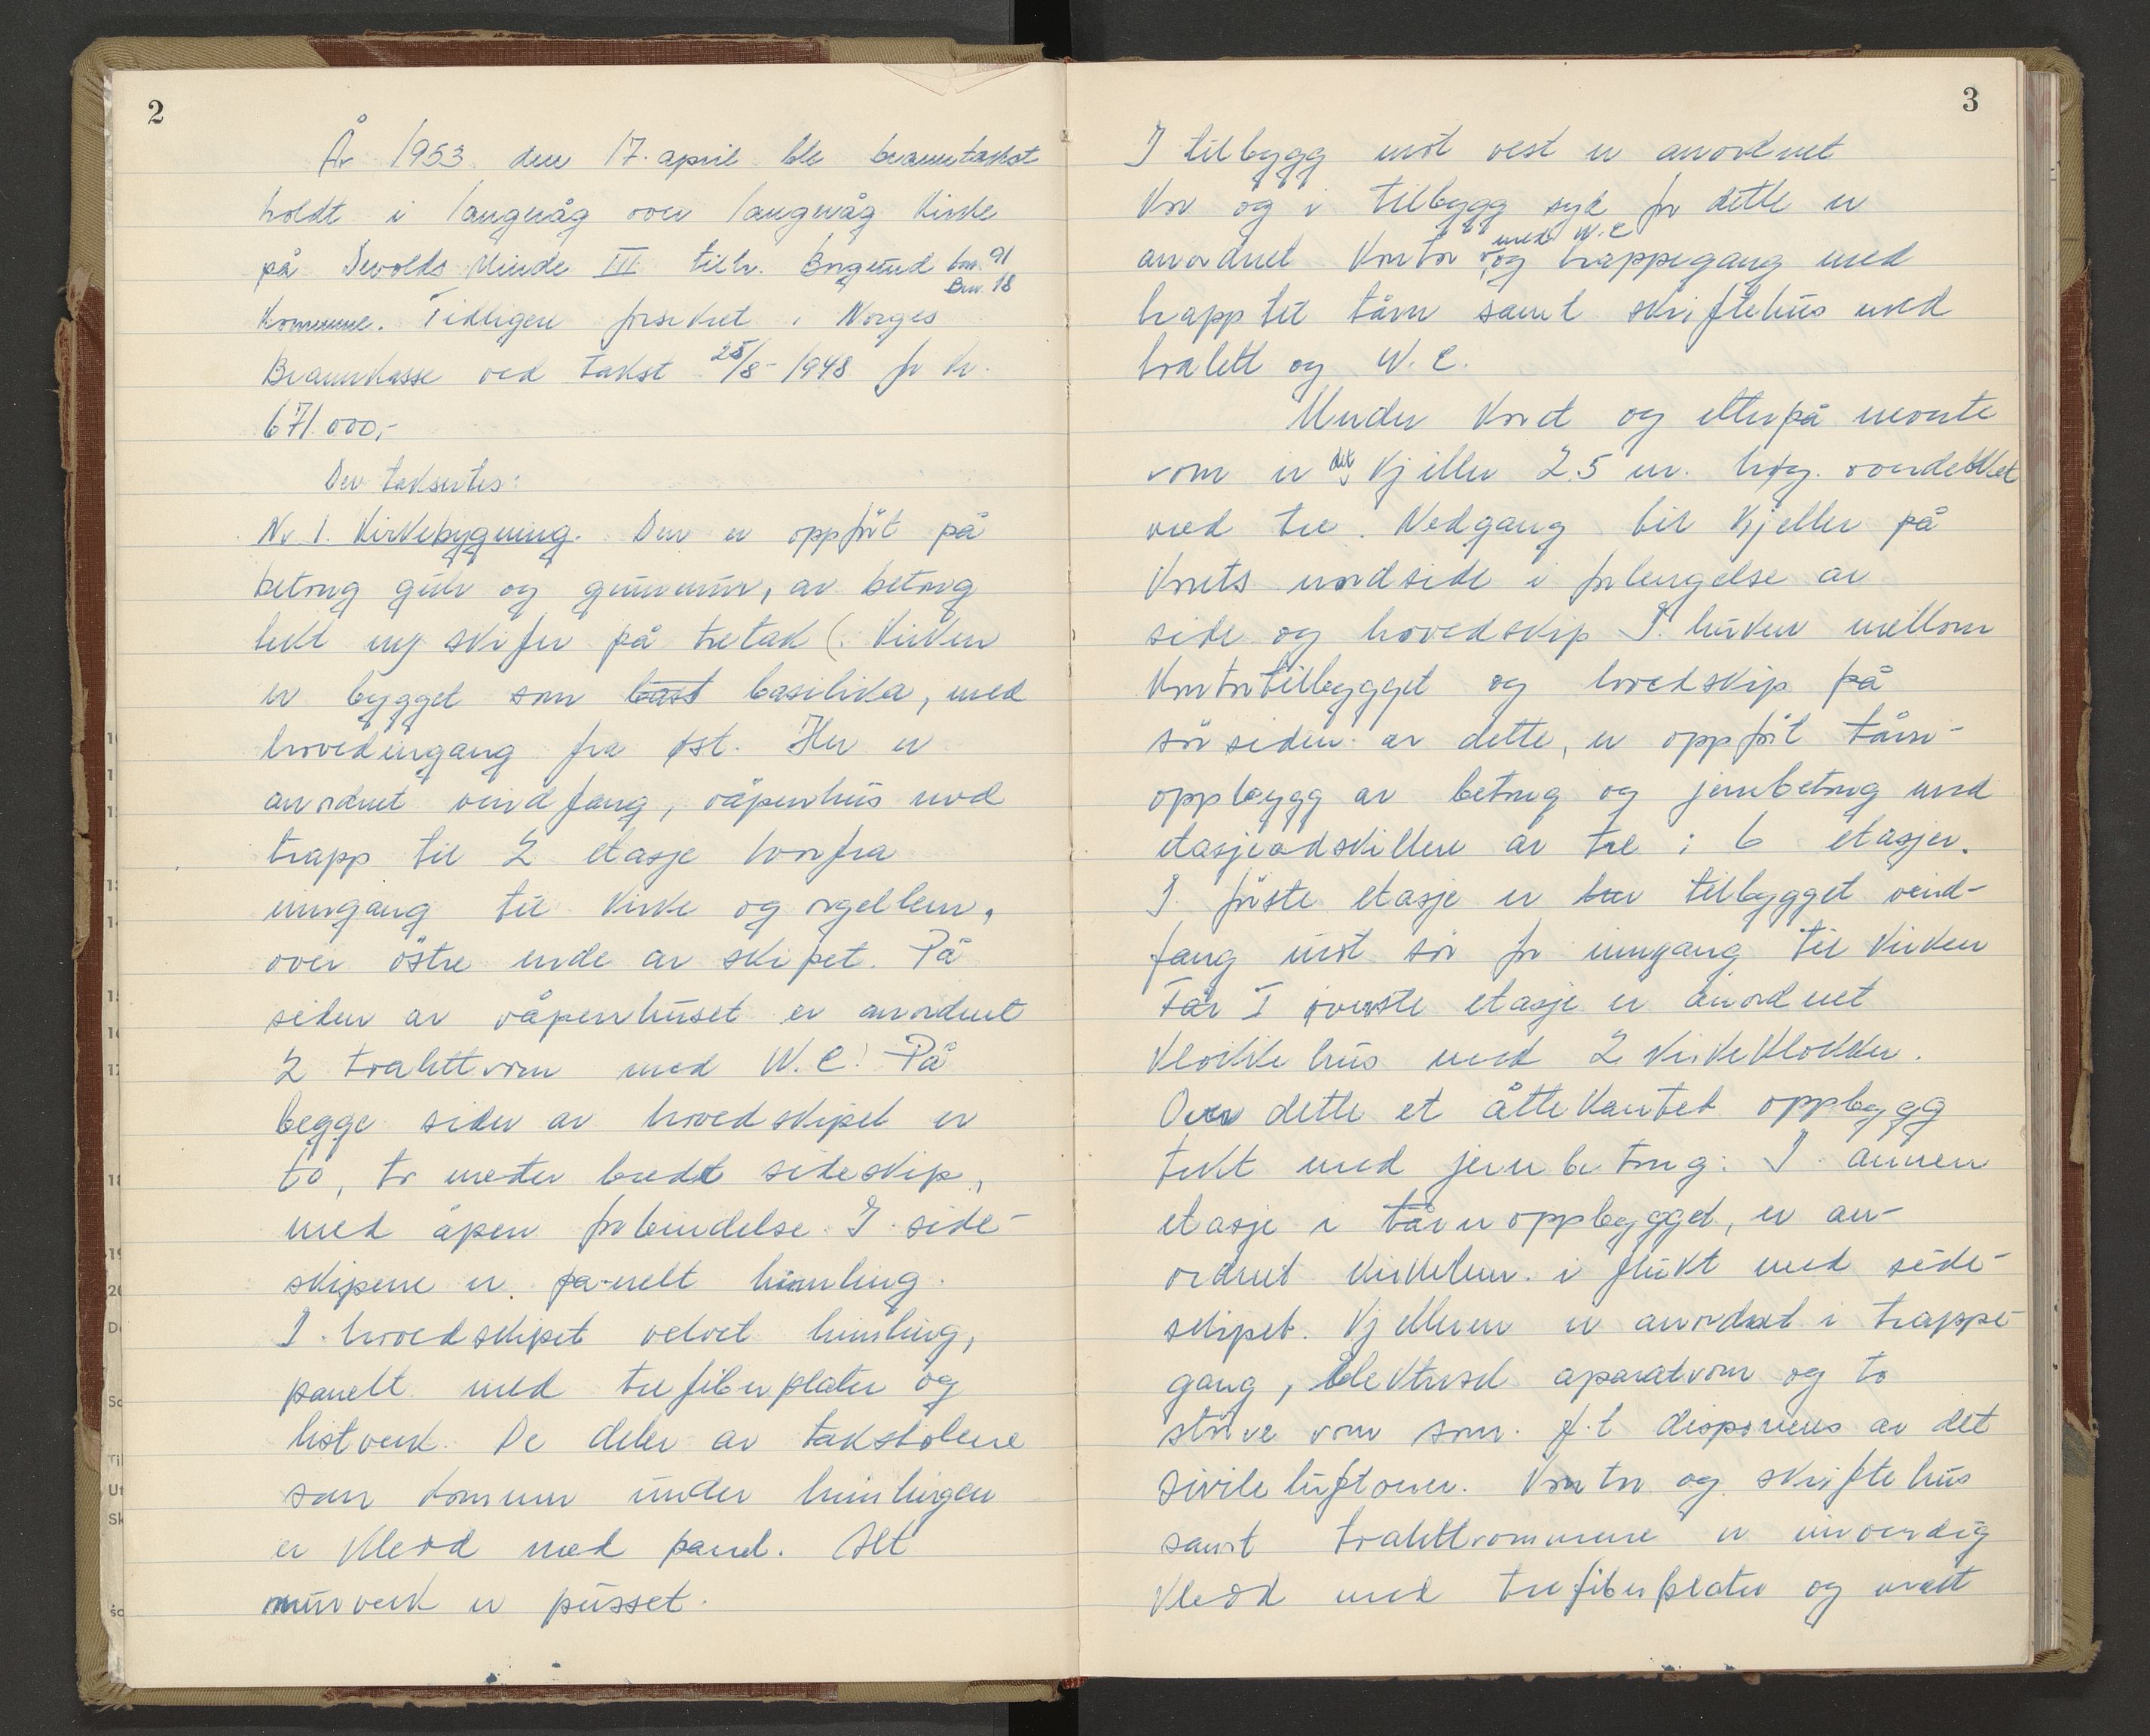 2
År 1953 den 17. april ble branntakst
holdt i Langevåg over Langevåg Kirke
på Devolds Minde III tilh. Borgund bnr. 91
Brn. 18
Kommune. Tidligere forsikret i Norges
Brannkasse ved takst 25/8-1948 for kr.
671.000,-
Der taksertes:
Nr 1. Kirkebygning. Den er oppført på
betong gulv og grunnmur, av betong
tekt m/ skifer på tretak (. Kirken
er bygget som bast basilika, med
hovedingang fra øst. Her er
anordnet vindfang, våpenhus med
trapp til 2 etasje hvorfra
inngang til kirke og orgellem,
over østre ende av skipet. På
siden av våpenhuset er anordnet
2 toalettrom med W.C. På
begge sider av hovedskipet er
to, to meter bredt sideskip,
med åpen forbindelse. I side-
skipene er pa-nelt himling.
I hovedskipet velvet himling,
panelt med trefiberplater og
listverk. De deler av takstolene
som kommer under himlingen
er kledd med panel. Alt
murverk er pusset.
3
I tilbygg mot vest er anordnet
Kor og i tilbygg syd for dette er
med W.C
anordnet Kontor og trappegang med
trapp til tårn samt skriftehus med
toalett og W.C.
Under Koret og etterpå nevnte
rom er det kjeller 2.5 m. høy. overdekket
med tre. Nedgang til kjeller på
Korets nordside i forlengelse av
side og hovedskip I kroken mellom
Kontortilbygget og hovedskip på
sørsiden av dette, er oppført tårn-
oppbygg av betong og jernbetong med
etasjeadskillere av tre i 6 etasjer.
I første etasje er her tilbygget vind-
fang mot sør for inngang til kirken
Tår I øverste etasje er anordnet
Klokkehus med 2 kirkeklokker.
Over dette et åttekantet oppbygg
tekt med jernbetong. I annen
etasje i tårnoppbygget, er an-
ordnet kirkelem i flukt med side-
skipet. Kjelleren er anordnet i trappe-
gang, elektrisk aparatrom og to
større rom som f.t disponeres av det
sivile luftvern. Kontor og skriftehus
samt toalettrommene er innvendig
kledd med trefiberplater og malt